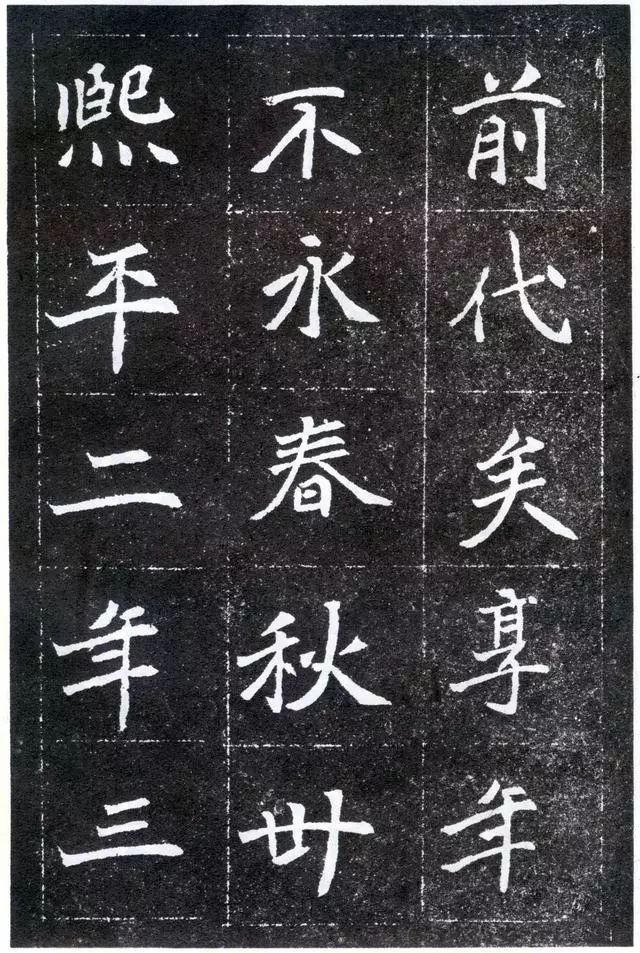 前代矣享年
不永春秋卅
熙平二年三